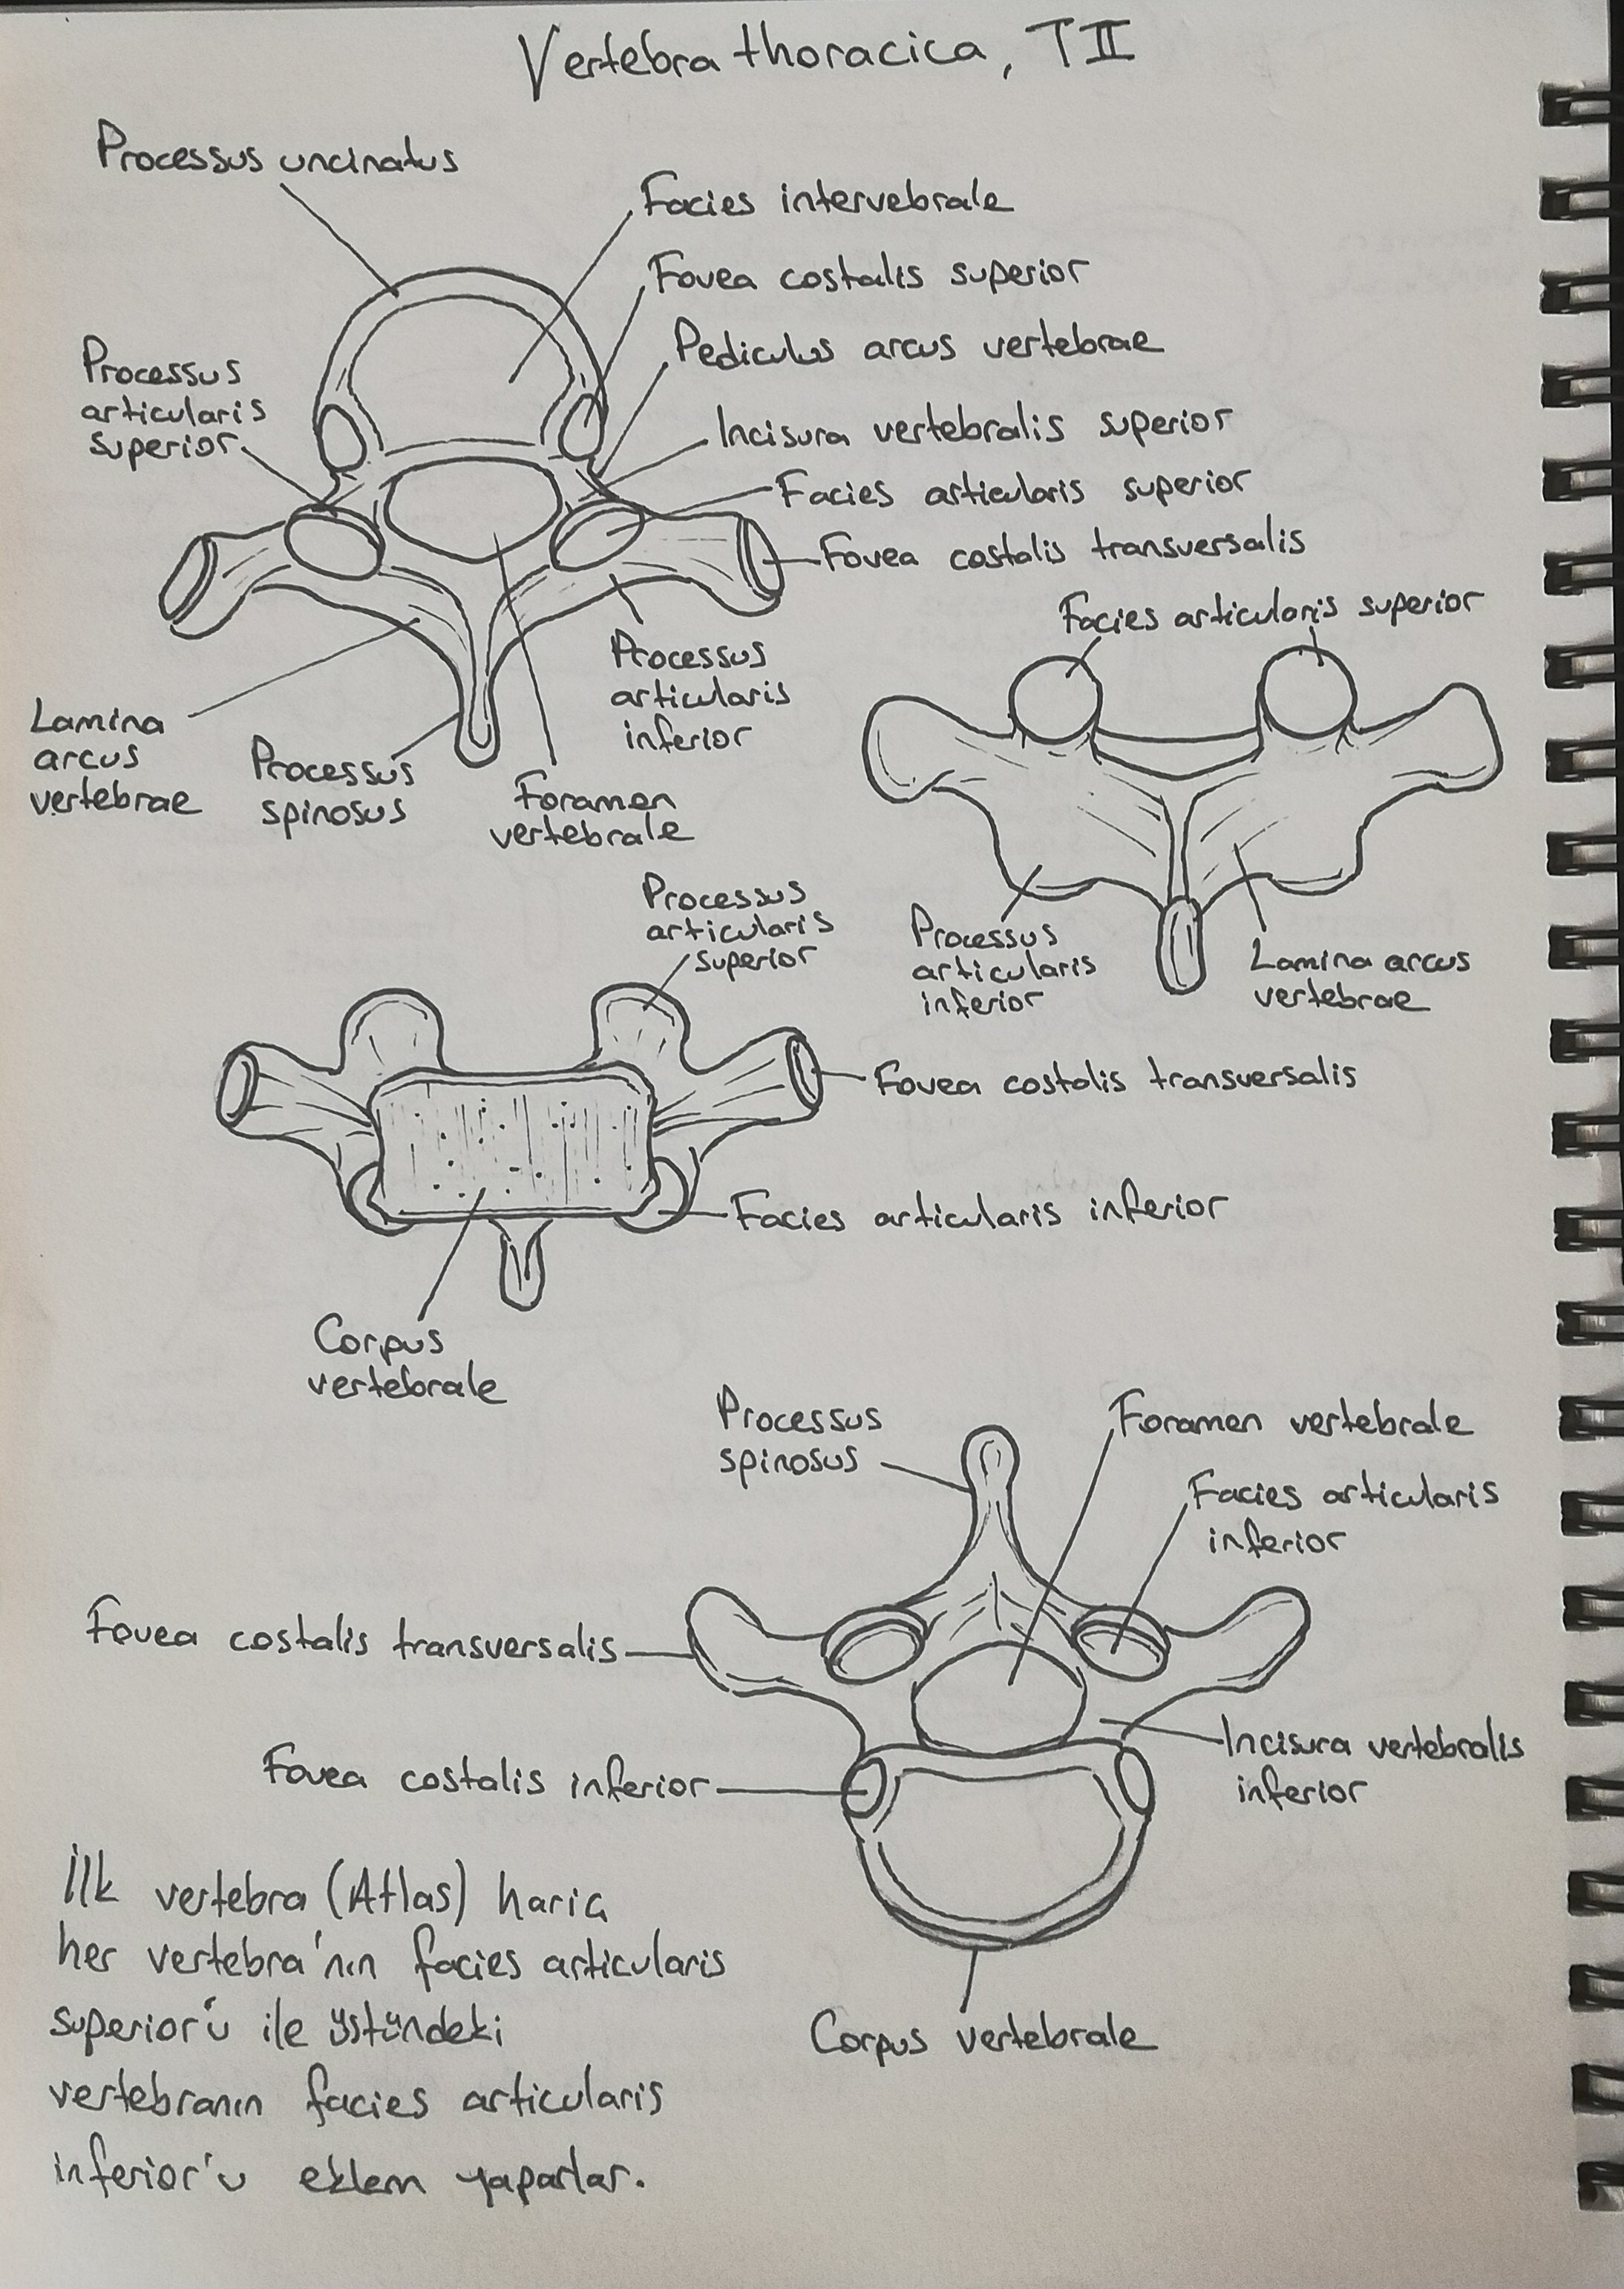 Vertebra thoracica, TII
Processus uncinatus
Facies intervebrale
Fovea costalis superior
Pediculus arcus vertebrae
Processus
articularis
superior
Incisura vertebralis superior
Facies articularis superior
Fovea costalis transversalis
Facies articularis superior
Processus
articularis
inferior
Lamina
arcus
vertebrae
Processus
spinosus
Foramen
vertebrale
Processus
articularis
superior
Processus
articularis
inferior
Lamina arcus
vertebrae
Fovea costalis transversalis
Facies articularis inferior
Corpus
vertebrale
Processus
spinosus
Foramen vertebrale
Facies articularis
inferior
Fovea costalis transversalis
Incisura vertebralis
inferior
Fovea costalis inferior
Corpus vertebrale
İlk vertebra (Atlas) hariç
her vertebra'nın facies articularis
superior'ü ile üstündeki
vertebranın facies articularis
inferior'u eklem yaparlar.